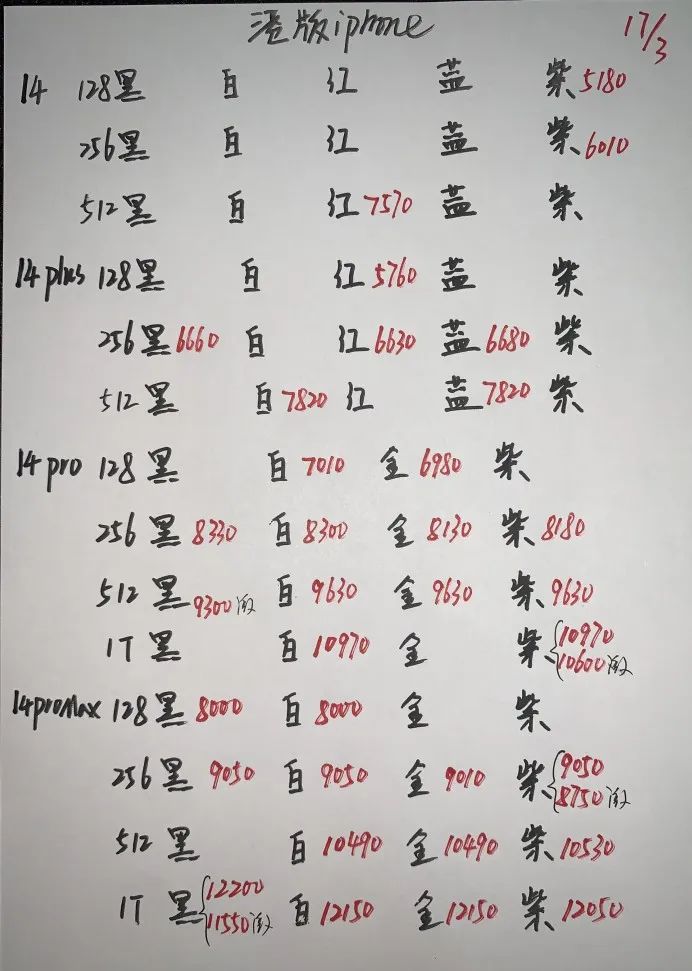 港版iphone 17/3
14 128黑 白 红 蓝 紫5180
256黑 白 红 蓝 紫6010
512黑 白 红7570 蓝 紫
14plus 128黑 白 红5760 蓝 紫
256黑6660 白 红6630 蓝6680 紫
512黑 白7820 红 蓝7820 紫
14pro 128黑 白7010 金6980 紫
256黑8330 白8300 金8130 紫8180
512黑9300 白9630 金9630 紫9630
1T黑 白10970 金 紫{10970
10600
14proMax 128黑8000 白8000 金 紫
256黑9050 白9050 金9010 紫{9050
8750
512黑 白10490 金10490 紫10530
1T黑{12200 白12150 金12150 紫12050
11550